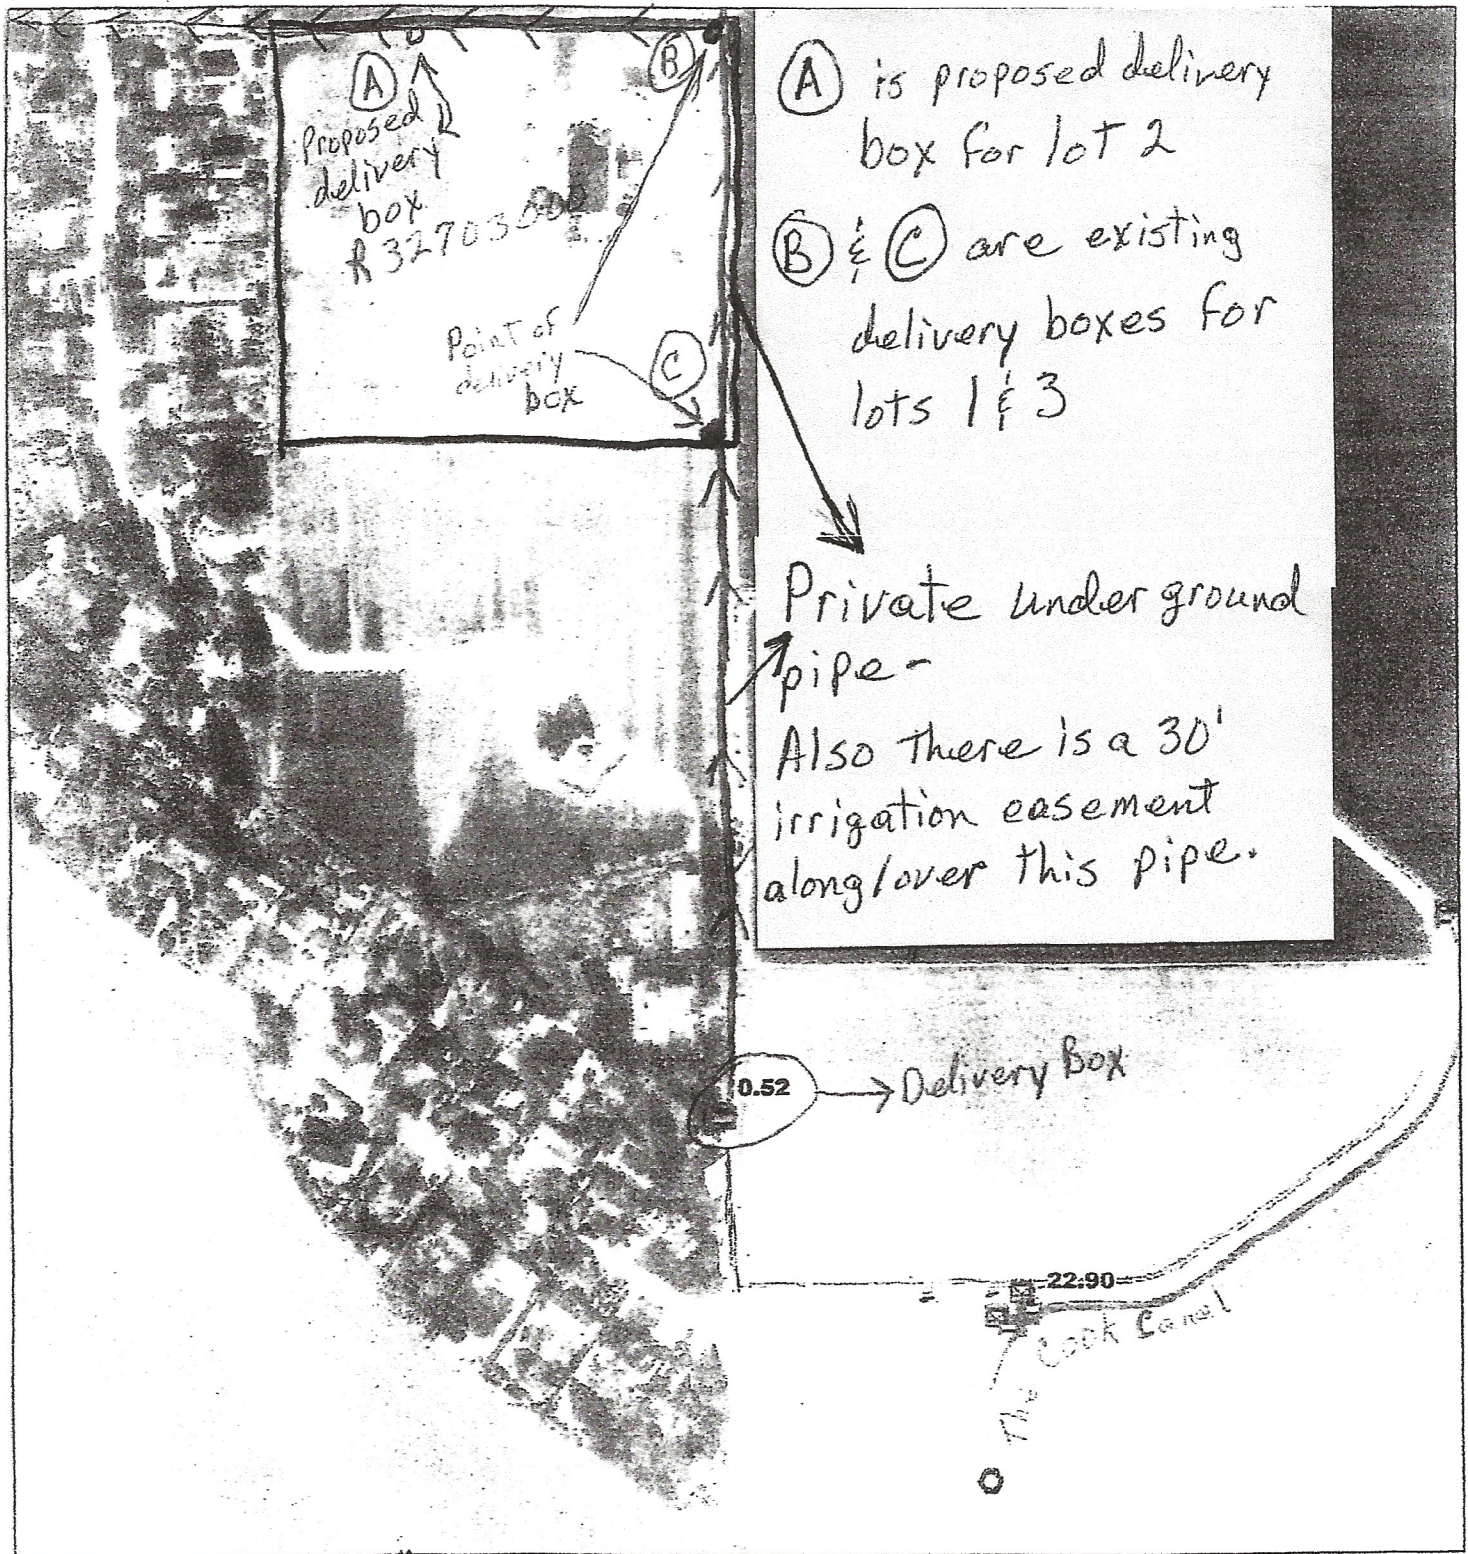 A
B
Proposed
delivery
box
R 32703000
Point of
delivery
box
C
A is proposed delivery
box for lot 2
B & C are existing
delivery boxes for
lots 1 & 3
Private underground
pipe -
Also there is a 30'
irrigation easement
along/over this pipe.
0.52
Delivery Box
22.90
The Cook Canal